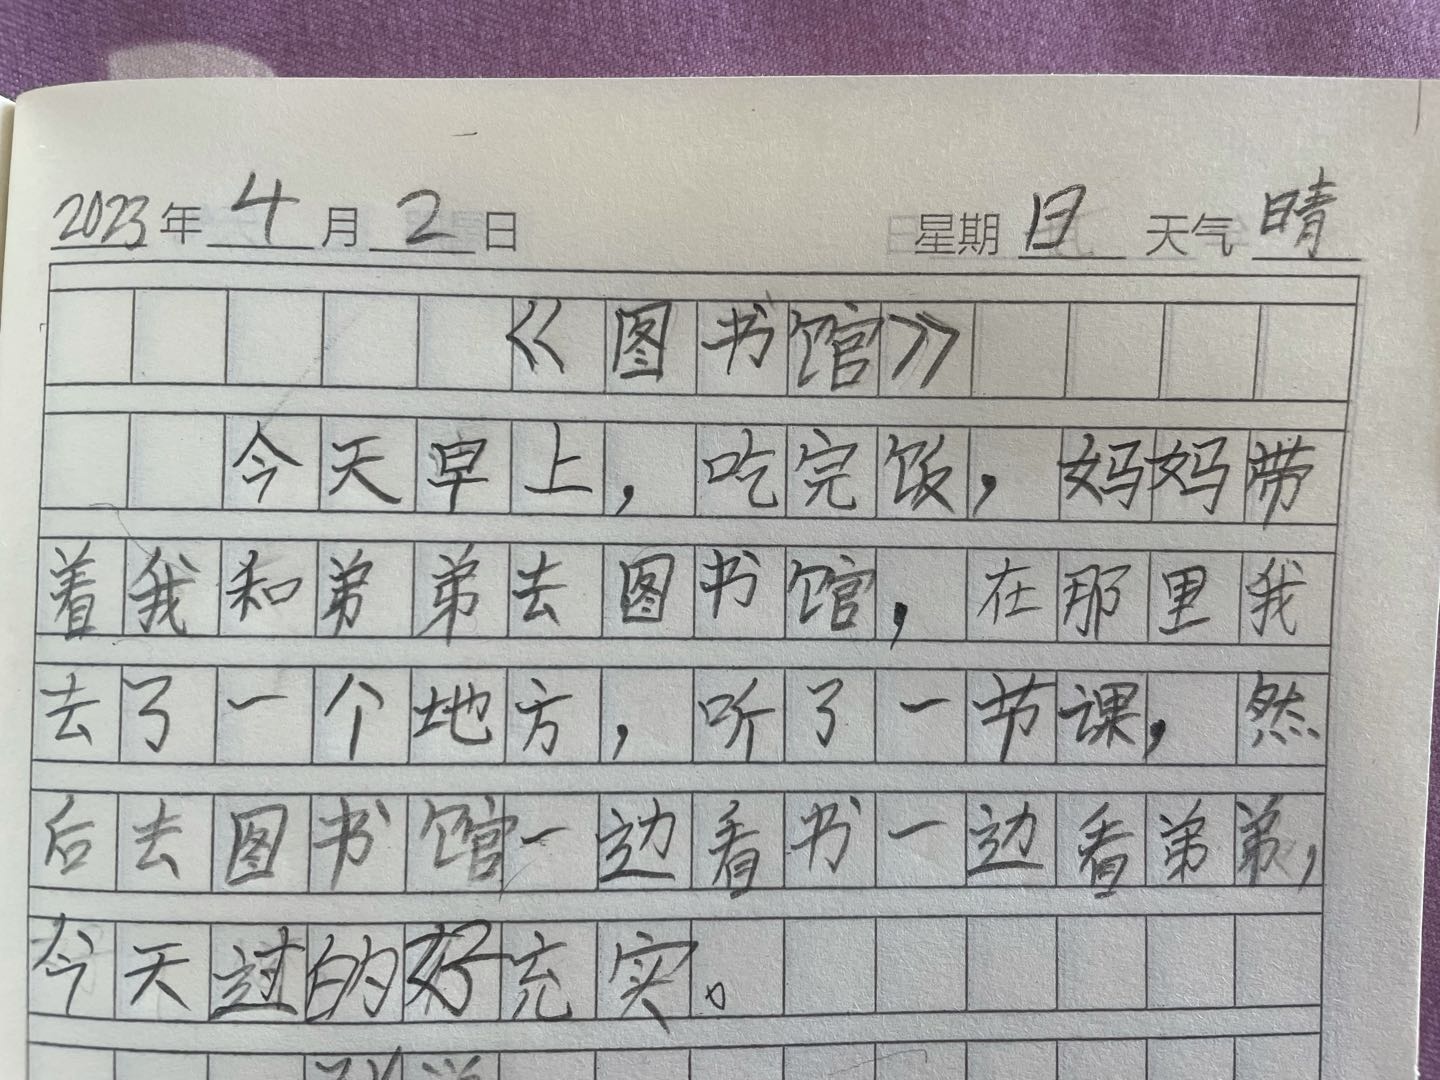 2023年4月2日 星期日 天气晴
《图书馆》
今天早上，吃完饭，妈妈带
着我和弟弟去图书馆，在那里我
去了一个地方，听了一节课，然
后去图书馆一边看书一边看弟弟，
今天过的好充实。